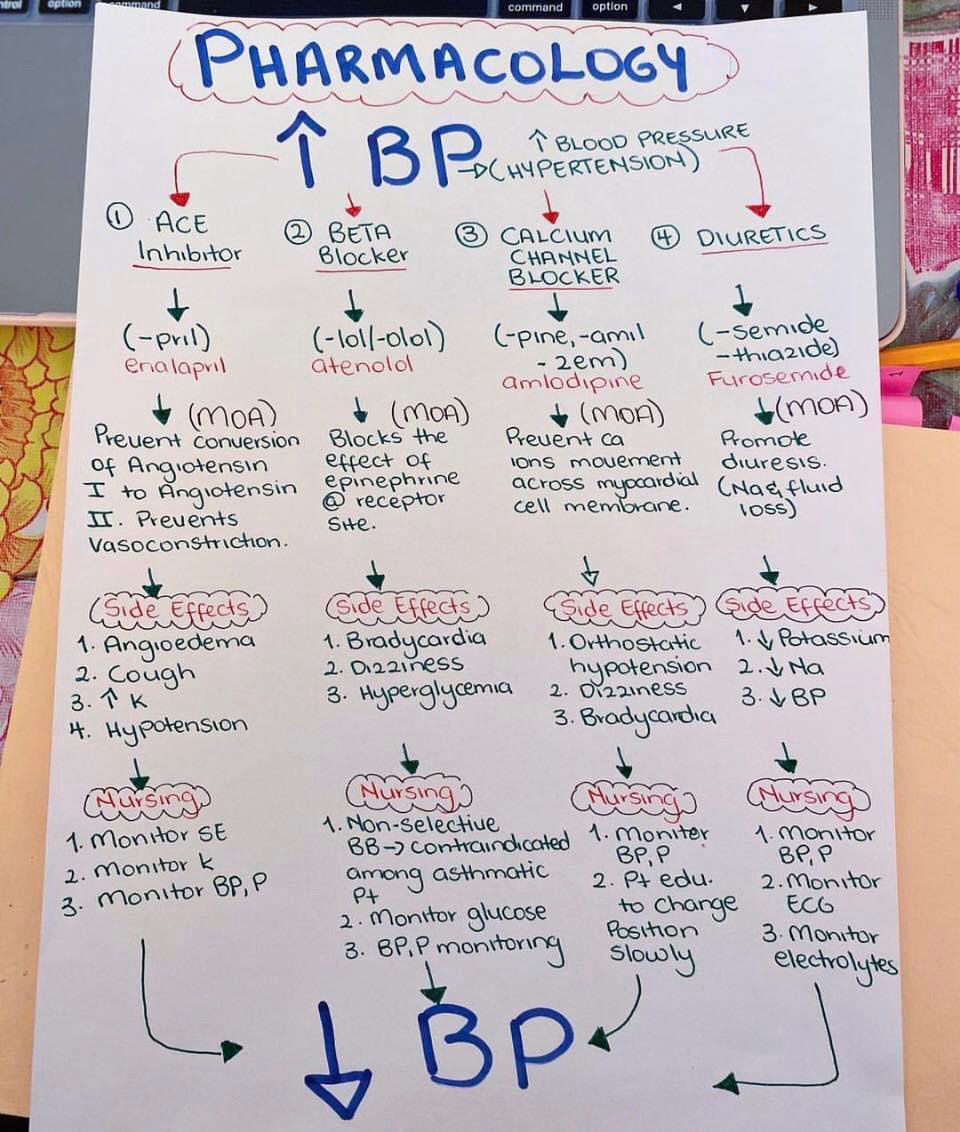 command
option
control
option
command
PHARMACOLOGY
↑ BP
↑ BLOOD PRESSURE
→(HYPERTENSION)
① ACE
Inhibitor
(-pril)
enalapril
(MOA)
Prevent conversion
of Angiotensin
I to Angiotensin
II. Prevents
Vasoconstriction.
Side Effects
1. Angioedema
2. Cough
3. ↑ K
4. Hypotension
Nursing
1. Monitor SE
2. Monitor K
3. Monitor BP, P
② BETA
Blocker
(-lol/-olol)
atenolol
(MOA)
Blocks the
effect of
epinephrine
@ receptor
Site.
Side Effects
1. Bradycardia
2. Dizziness
3. Hyperglycemia
Nursing
1. Non-selective
BB → contraindicated
among asthmatic
Pt
2. Monitor glucose
3. BP, P monitoring
③ CALCIUM
CHANNEL
BLOCKER
(-pine, -amil
-zem)
amlodipine
(MOA)
Prevent ca
ions movement
across myocardial
cell membrane.
Side Effects
1. Orthostatic
hypotension
2. Dizziness
3. Bradycardia
Nursing
1. Moniter
BP, P
2. Pt edu.
to change
Position
Slowly
④ DIURETICS
(-Semide
-thiazide)
Furosemide
(MOA)
Promote
diuresis.
(Na & fluid
loss)
Side Effects
1. ↓ Potassium
2. ↓ Na
3. ↓ BP
Nursing
1. Monitor
BP, P
2. Monitor
ECG
3. Monitor
electrolytes
↓ BP